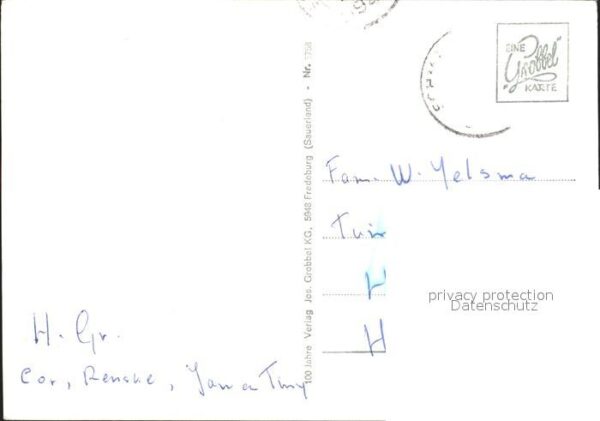 EINE
"Grobbel"
KARTE
100 Jahre Verlag Jos. Grobbel KG, 5948 Fredeburg (Sauerland) - Nr.
Fam. W. Yelsma
Tuin
H
H
privacy protection
Datenschutz
H. Gr.
Cor, Renske,